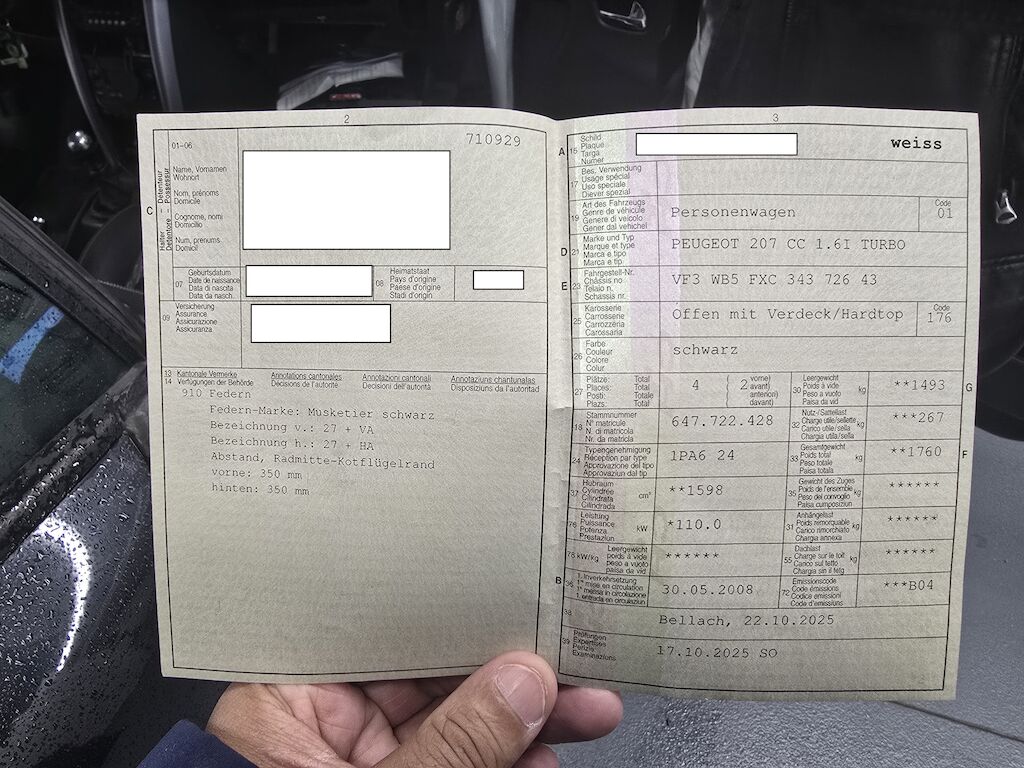 2
01–06
710929
C
Halter Détenteur
Detentore Possessur
Name, Vornamen
Wohnort
Nom, prénoms
Domicile
Cognome, nomi
Domicilio
Num, prenums
Domicil
07
Geburtsdatum
Date de naissance
Data di nascita
Data da nasch.
08
Heimatstaat
Pays d'origine
Paese d'origine
Stadi d'origin
09
Versicherung
Assurance
Assicurazione
Assicuranza
13
14
Kantonale Vermerke
Verfügungen der Behörde
Annotations cantonales
Décisions de l'autorité
Annotazioni cantonali
Decisioni dell'autorità
Annotaziuns chantunalas
Disposiziuns da l'autoritad
910 Federn
Federn-Marke: Musketier schwarz
Bezeichnung v.: 27 + VA
Bezeichnung h.: 27 + HA
Abstand, Radmitte-Kotflügelrand
vorne: 350 mm
hinten: 350 mm
3
A 15
Schild
Plaque
Targa
Numer
weiss
17
Bes. Verwendung
Usage spécial
Uso speciale
Diever spezial
19
Art des Fahrzeugs
Genre de véhicule
Genere di veicolo
Gener dal vehichel
Personenwagen
Code
01
D 21
Marke und Typ
Marque et type
Marca e tipo
Marca e tip
PEUGEOT 207 CC 1.6I TURBO
E 23
Fahrgestell-Nr.
Châssis no
Telaio n.
Schassis nr.
VF3 WB5 FXC 343 726 43
25
Karosserie
Carrosserie
Carrozzeria
Carossaria
Offen mit Verdeck/Hardtop
Code
176
26
Farbe
Couleur
Colore
Colur
schwarz
27
Plätze: Total
Places: Total
Posti: Totale
Plazs: Total
4
( 2 vorne)
avant)
anteriori)
davant)
30
Leergewicht
Poids à vide
Peso a vuoto
Paisa da vid
kg
**1493
G
18
Stammnummer
N° matricule
N. di matricola
Nr. da matricla
647.722.428
32
Nutz-/Sattellast
Charge utile/sellette
Carico utile/sella
Chargia utila/sella
kg
***267
24
Typengenehmigung
Réception par type
Approvazione del tipo
Approvaziun dal tip
1PA6 24
33
Gesamtgewicht
Poids total
Peso totale
Paisa totala
kg
**1760
F
37
Hubraum
Cylindrée
Cilindrata
Cilindrada
cm³
**1598
35
Gewicht des Zuges
Poids de l'ensemble
Peso del convoglio
Paisa cumposiziun
kg
******
76
Leistung
Puissance
Potenza
Prestaziun
kW
*110.0
31
Anhängelast
Poids remorquable
Carico rimorchiato
Chargia annexa
kg
******
78 kW/kg
Leergewicht
poids à vide
peso a vuoto
paisa da vid
******
55
Dachlast
Charge sur le toit
Carico sul tetto
Chargia sin il tetg
kg
******
B 36
1. Inverkehrsetzung
1re mise en circulation
1a messa in circolazione
1. entrada en circulaziun
30.05.2008
72
Emissionscode
Code émissions
Codice emissioni
Code d'emissiuns
***B04
38
Bellach, 22.10.2025
39
Prüfungen
Expertises
Perizie
Examinaziuns
17.10.2025 SO